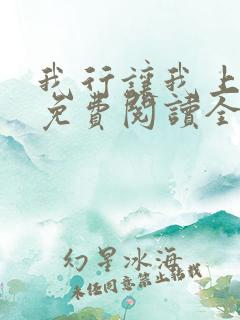 我行讓我上
免費閱讀全
幻星冰海
未经同意禁止转载